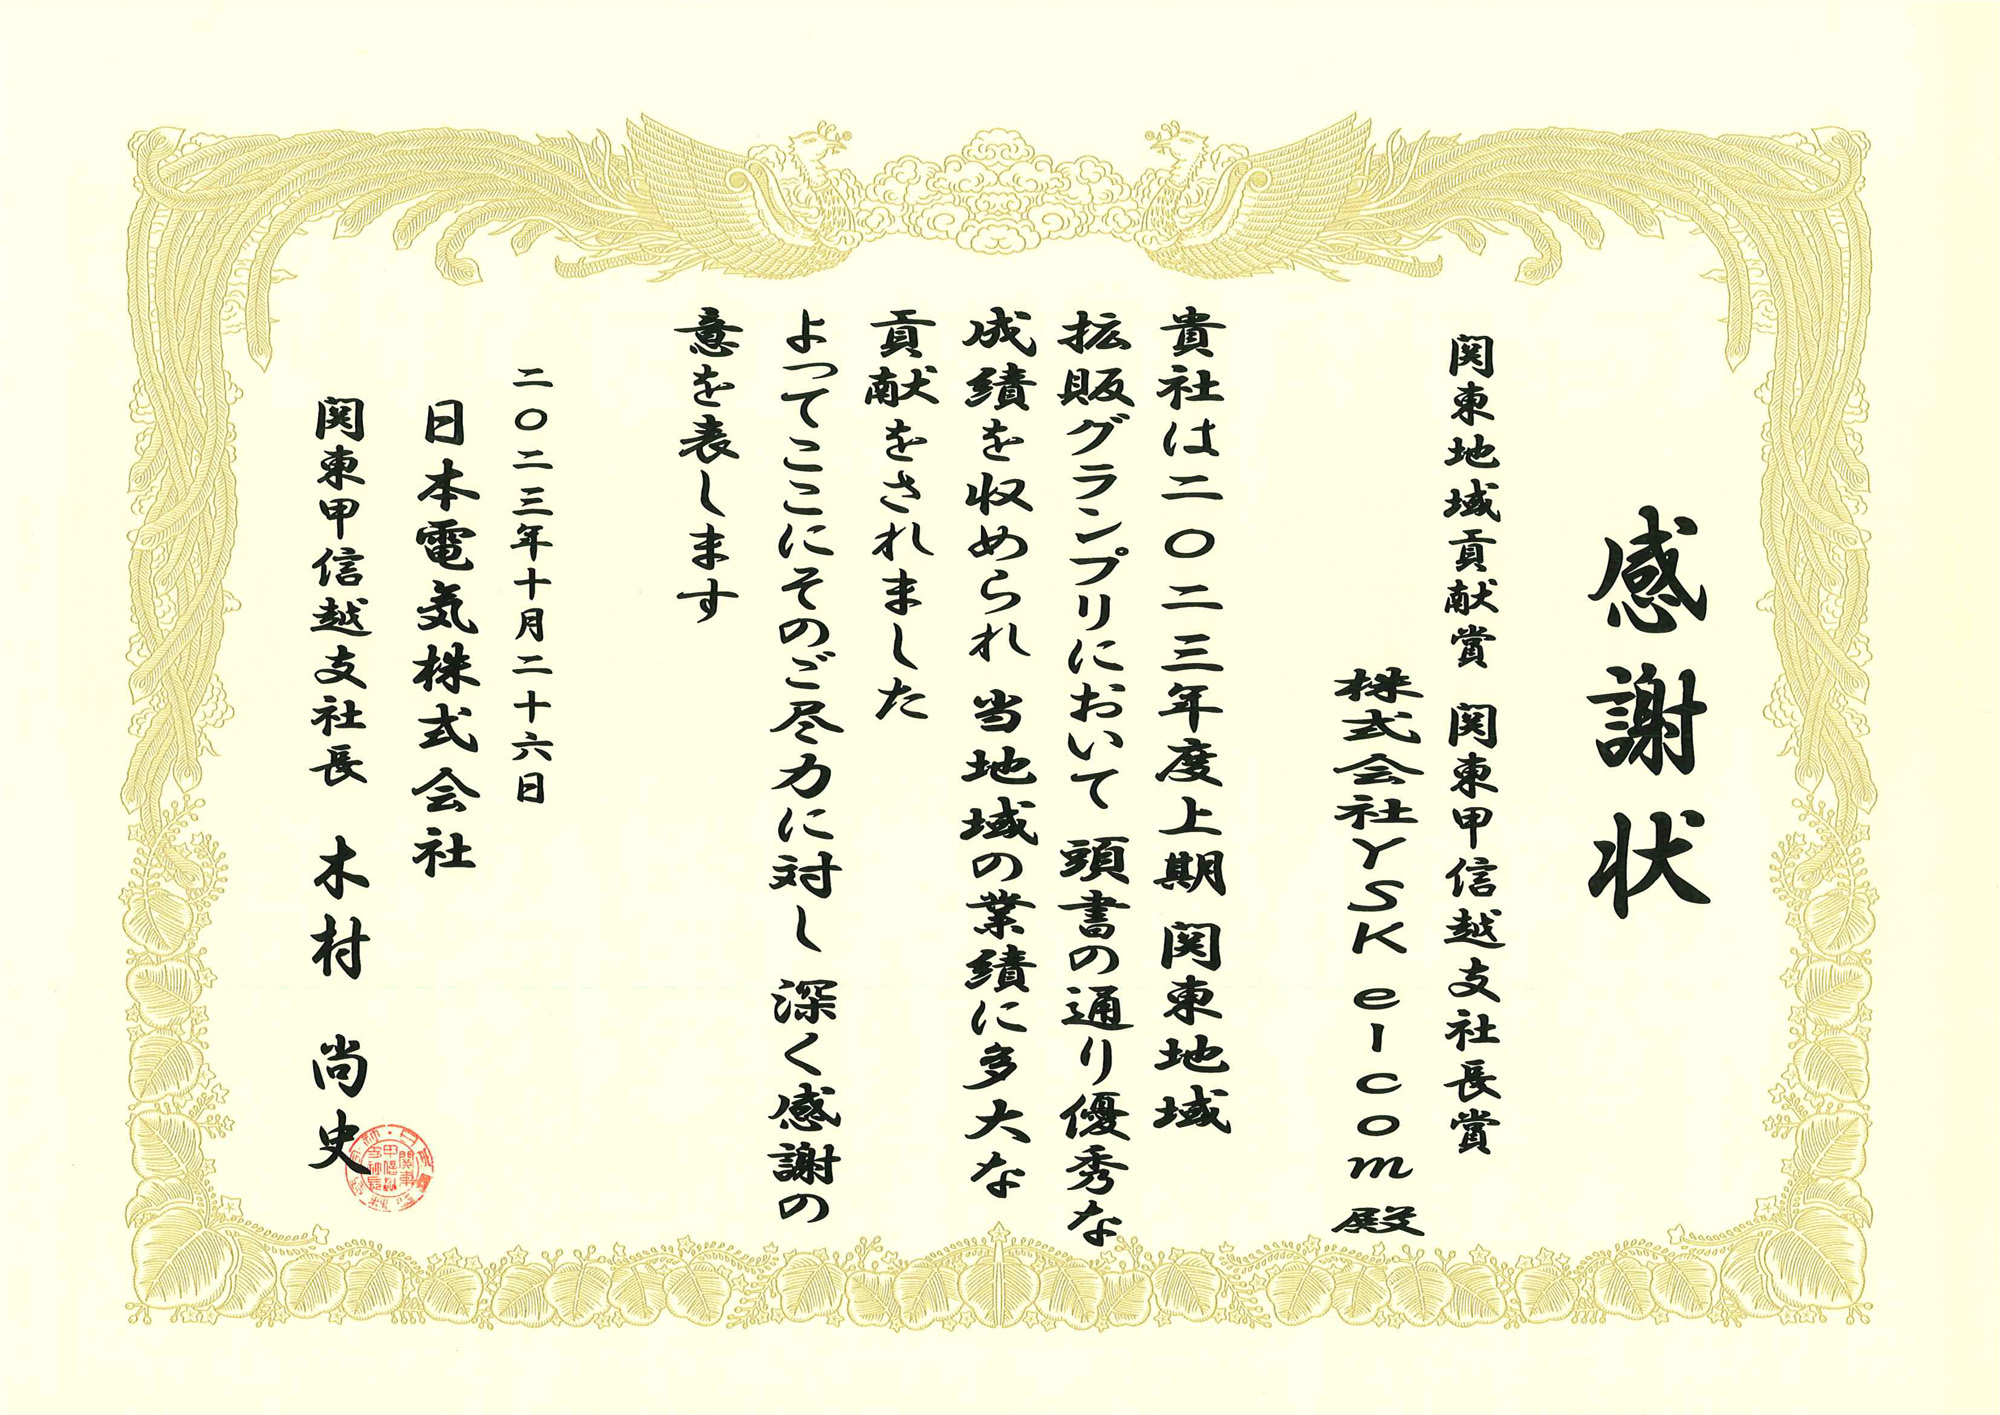 感謝状
関東地域貢献賞 関東甲信越支社長賞
株式会社YSK elcom殿
貴社は二〇二三年度上期 関東地域
拡販グランプリにおいて 頭書の通り優秀な
成績を収められ 当地域の業績に多大な
貢献をされました
よってここにそのご尽力に対し 深く感謝の
意を表します
二〇二三年十月二十六日
日本電気株式会社
関東甲信越支社長 木村 尚史